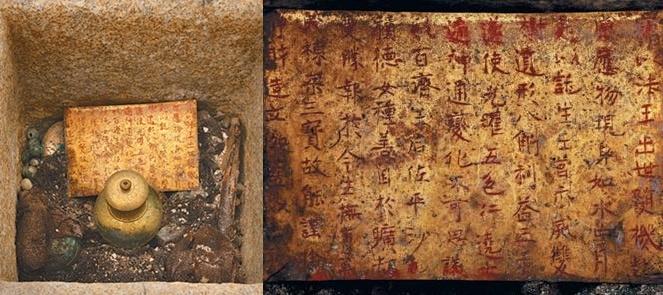 以法王出世隨機赴
應物現身如水中月
以託生王宮示滅雙
遺形八斛利益三千
遂使光曜五色行遶
遍神通變化不可思議
百濟王后佐平沙
積德女種善因於曠劫
受勝報於今生撫育
棟梁三寶故能謹捨
淨財造立伽藍以